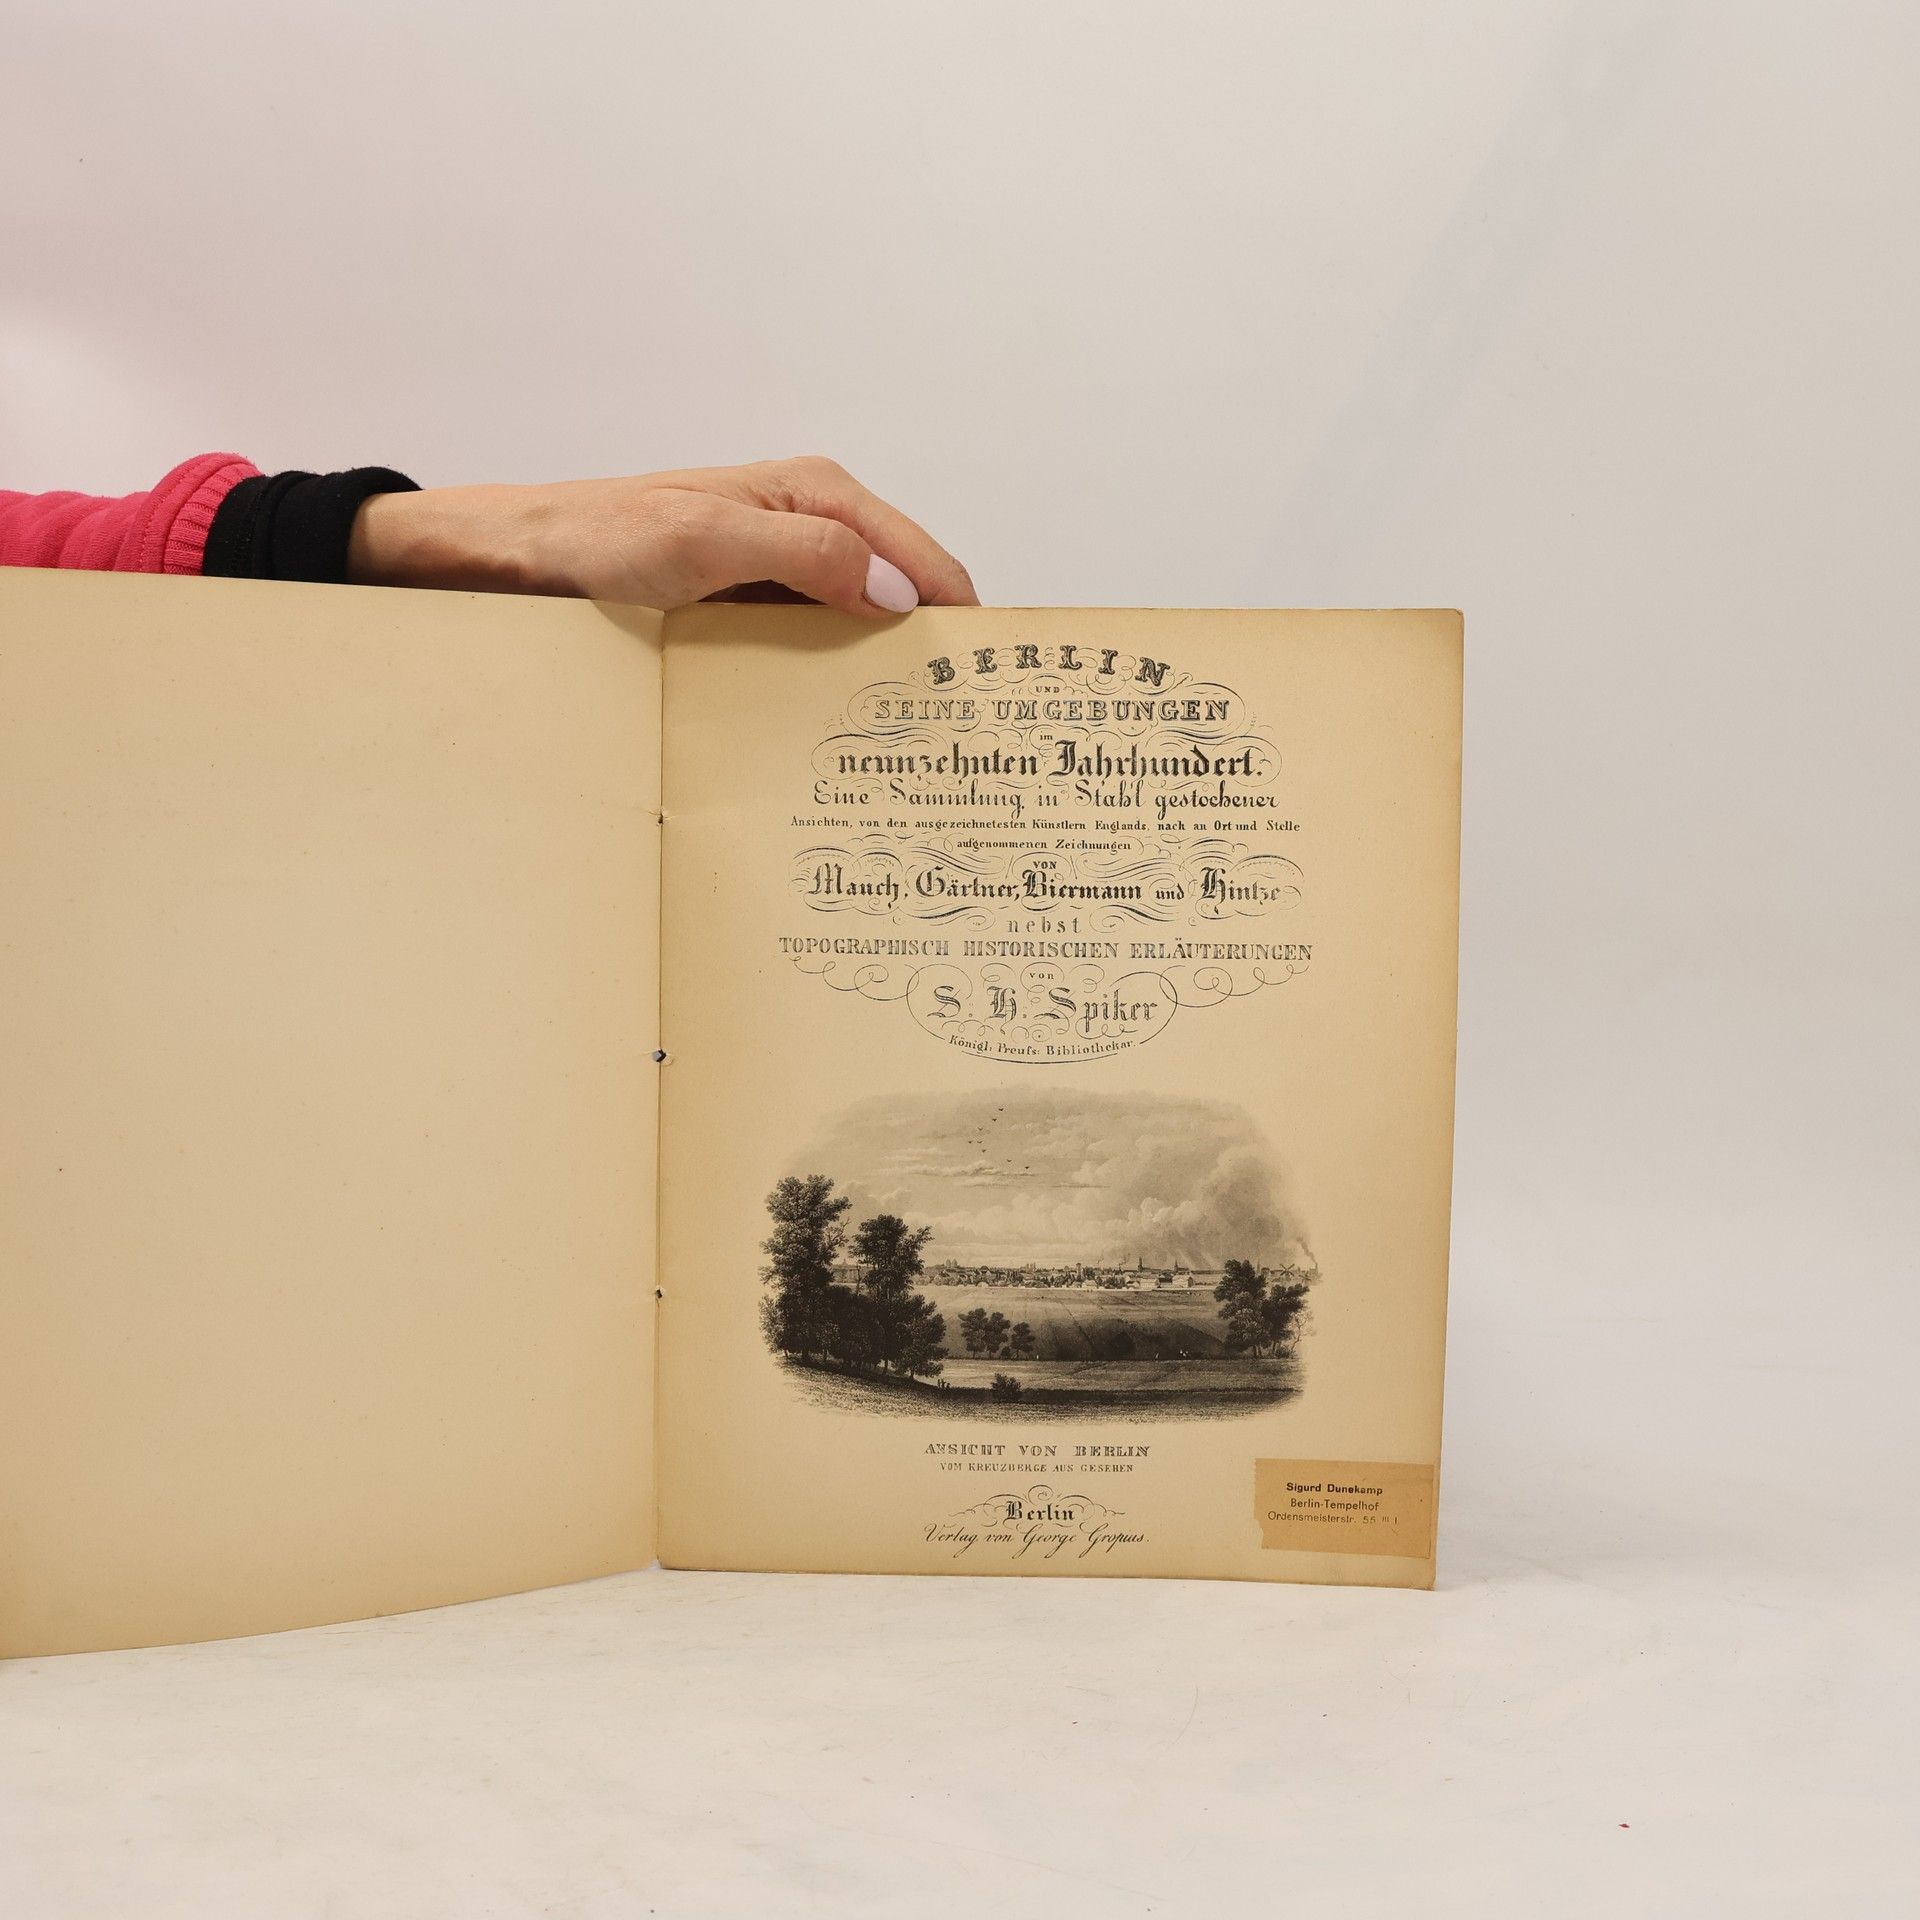 BERLIN
UND
SEINE UMGEBUNGEN
im
neunzehnten Jahrhundert.
Eine Sammlung in Stahl gestochener
Ansichten, von den ausgezeichnetesten Künstlern Englands, nach an Ort und Stelle
aufgenommenen Zeichnungen
VON
Mauch, Gärtner, Biermann und Hintze
nebst
TOPOGRAPHISCH HISTORISCHEN ERLÄUTERUNGEN
von
S. H. Spiker
Königl: Preuſs: Bibliothekar.
ANSICHT VON BERLIN
VOM KREUZBERGE AUS GESEHEN
Berlin
Verlag von George Gropius.
Sigurd Dunekamp
Berlin-Tempelhof
Ordensmeisterstr. 55 III l.